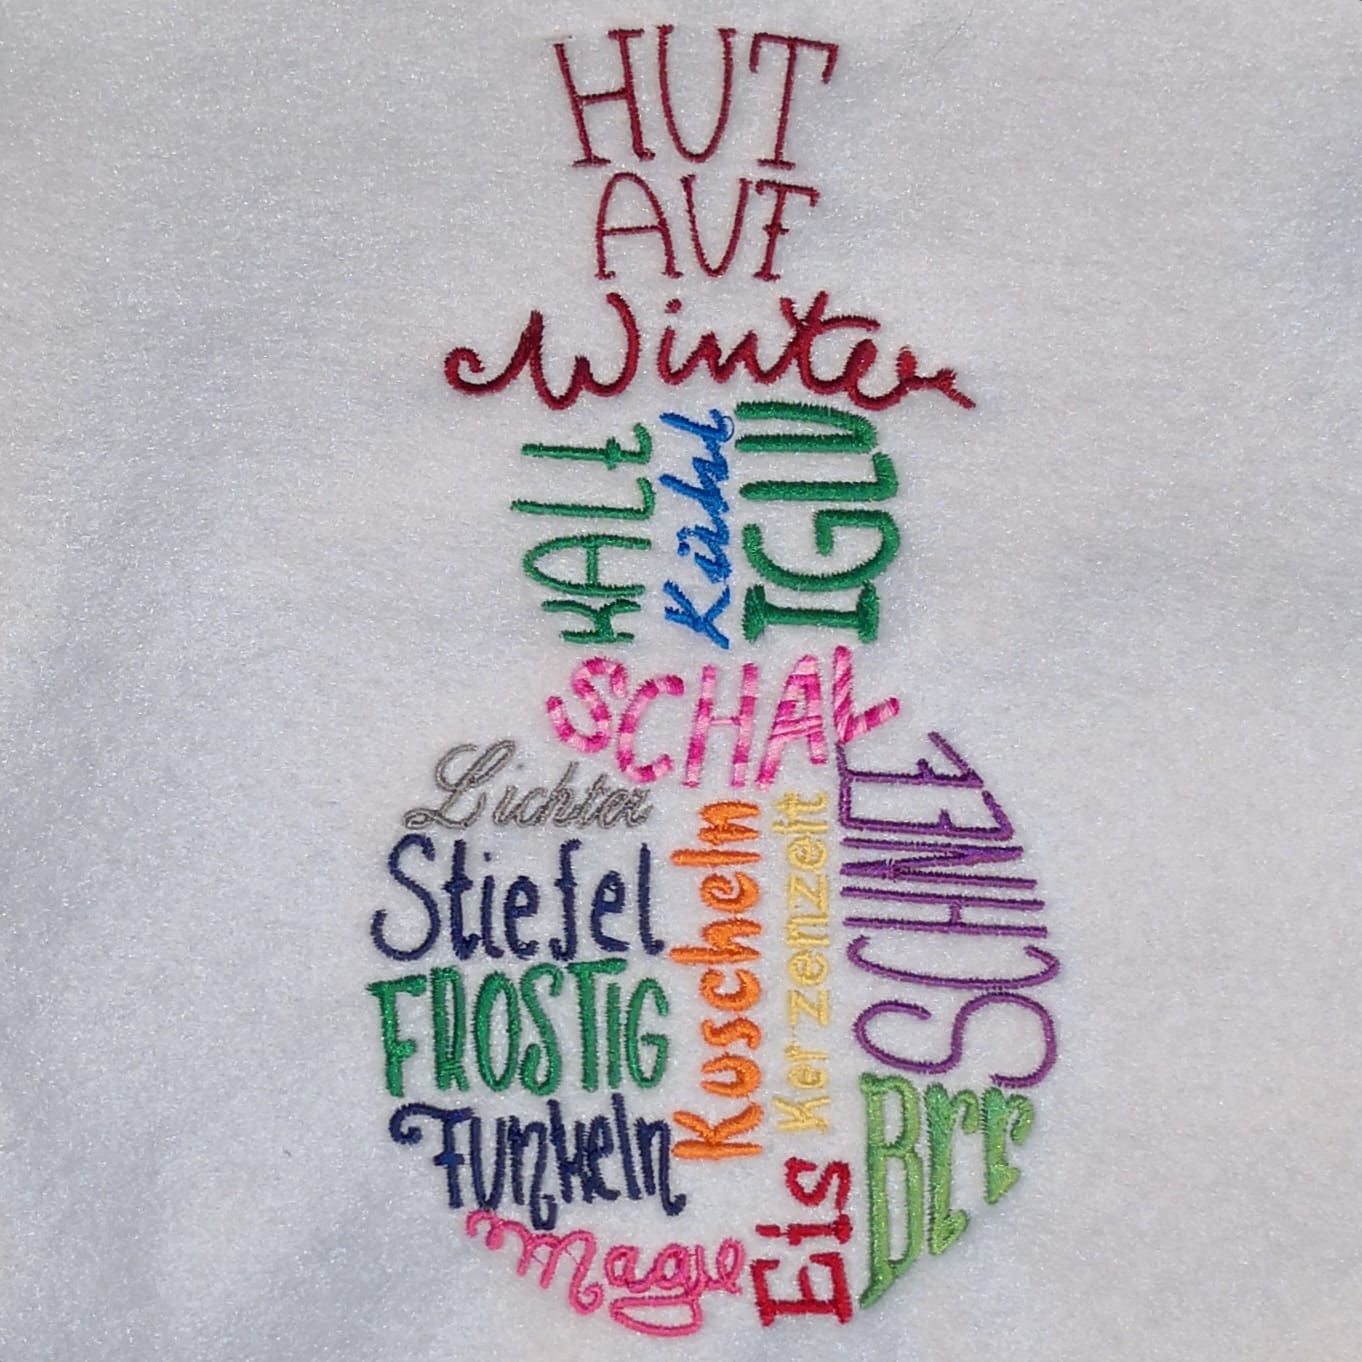 HUT
AUF
Winter
KALt
Kühl
IGLU
SCHAL
Lichter
Stiefel
FROSTiG
Funkeln
Magie
Kuscheln
Kerzenzeit
Eis
SCHNEE
Brr